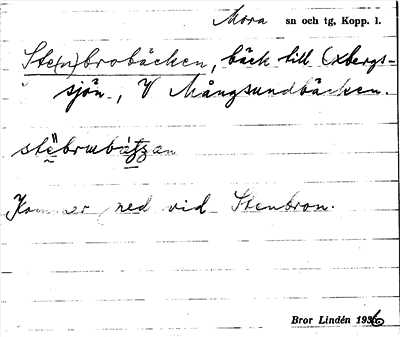 Mora sn och tg, Kopp. l.
Ste(n)brobäcken, bäck till Oxbergs-
sjön, V Mångsundbäcken.
Kommer ned vid Stenbron.
Bror Lindén 1936